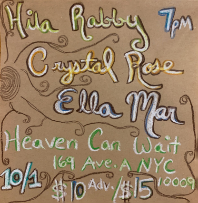 Hila Rabby 7pm
Crystal Rose
Ella Mar
Heaven Can Wait
169 Ave. A NYC
10009
10/1 $10 Adv. / $15